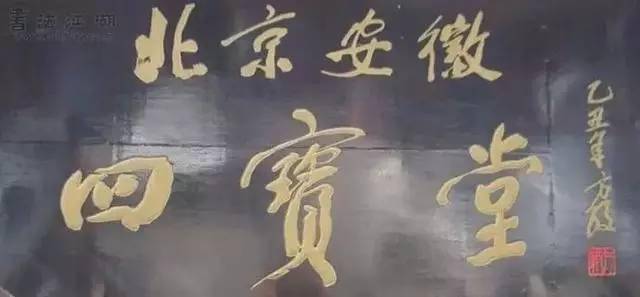 书法江湖
北京安徽
四寶堂
乙丑年方毅